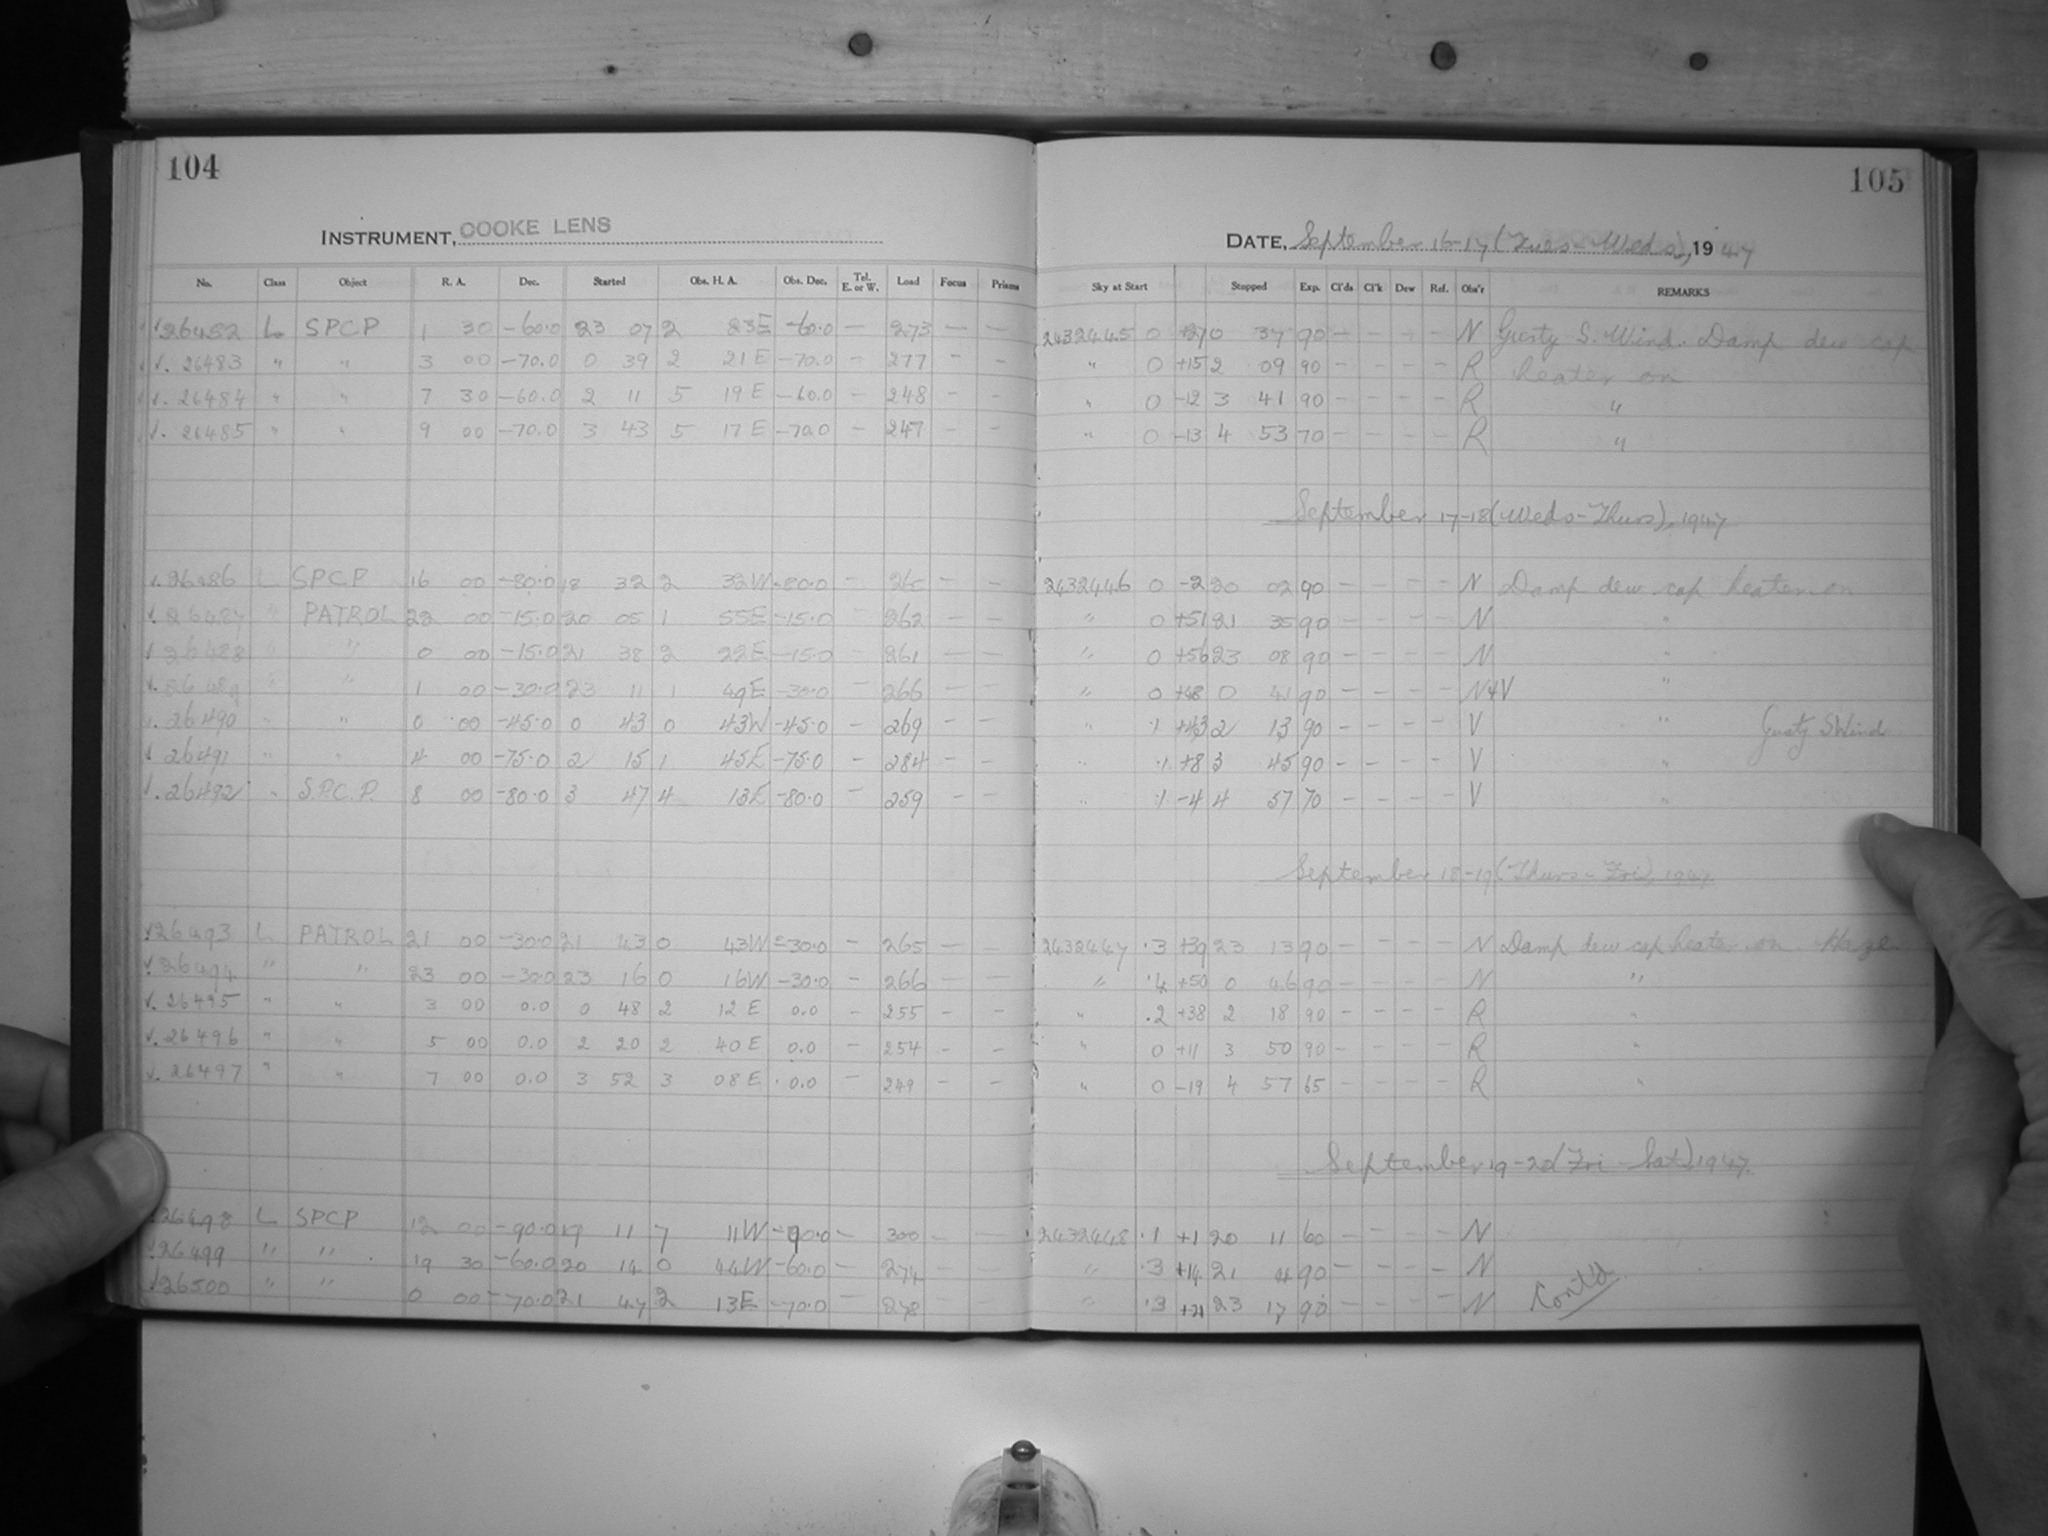 104
105
INSTRUMENT, COOKE LENS
DATE, September 16-17 (Tues-Weds), 1947
No. Class Object R. A. Dec. Started Obs. H. A. Obs. Dec. Tel. E. or W. Load Focus Prisms Sky at Start Stopped Exp. Cl'ds Cl'k Dew Ref. Obs'r REMARKS
26482 L SPCP 1 30 -60.0 23 07 2 23E -60.0 — 273 — — 2432445 0 +27 0 37 90 — — — — N Gusty S. Wind. Damp dew cap
26483 " " 3 00 -70.0 0 39 2 21E -70.0 — 277 — — " 0 +15 2 09 90 — — — — R heater on
26484 " " 7 30 -60.0 2 11 5 19E -60.0 — 248 — — " 0 -12 3 41 90 — — — — R "
26485 " " 9 00 -70.0 3 43 5 17E -70.0 — 247 — — " 0 -13 4 53 70 — — — — R "
September 17-18 (Weds-Thurs), 1947
26486 L SPCP 16 00 -80.0 18 32 2 32W -80.0 — — — 2432446 0 -2 20 02 90 — — — — N Damp dew cap heater on
26487 " PATROL 22 00 -15.0 20 05 1 55E -15.0 — 262 — — " 0 +51 21 35 90 — — — — N "
26488 " " 0 00 -15.0 21 38 2 22E -15.0 — 261 — — " 0 +56 23 08 90 — — — — N "
26489 " " 1 00 -30.0 23 11 1 49E -30.0 — 266 — — " 0 +48 0 41 90 — — — — N+V "
26490 " " 0 00 -45.0 0 43 0 43W -45.0 — 269 — — " .1 +43 2 13 90 — — — — V " Gusty S Wind
26491 " " 4 00 -75.0 2 15 1 45E -75.0 — 284 — — " .1 +8 3 45 90 — — — — V "
26492 " S.P.C.P. 8 00 -80.0 3 47 4 13E -80.0 — 259 — — " .1 -4 4 57 70 — — — — V "
September 18-19 (Thurs-Fri), 1947
26493 L PATROL 21 00 -30.0 21 43 0 43W -30.0 — 265 — — 2432447 .3 +39 23 13 90 — — — — N Damp dew cap heater on. Haze
26494 " " 23 00 -30.0 23 16 0 16W -30.0 — 266 — — " .4 +50 0 46 90 — — — — N "
26495 " " 3 00 0.0 0 48 2 12E 0.0 — 255 — — " .2 +38 2 18 90 — — — — R "
26496 " " 5 00 0.0 2 20 2 40E 0.0 — 254 — — " 0 +11 3 50 90 — — — — R "
26497 " " 7 00 0.0 3 52 3 08E 0.0 — 249 — — " 0 -19 4 57 65 — — — — R "
September 19-20 (Fri-Sat), 1947
26498 L SPCP 12 00 -90.0 19 11 7 11W -90.0 — 300 — — 2432448 .1 +1 20 11 60 — — — — N
26499 " " 19 30 -60.0 20 14 0 44W -60.0 — 274 — — " .3 +14 21 44 90 — — — — N
26500 " " 0 00 -70.0 21 47 2 13E -70.0 — 278 — — " .3 +21 23 17 90 — — — — N
Cont'd